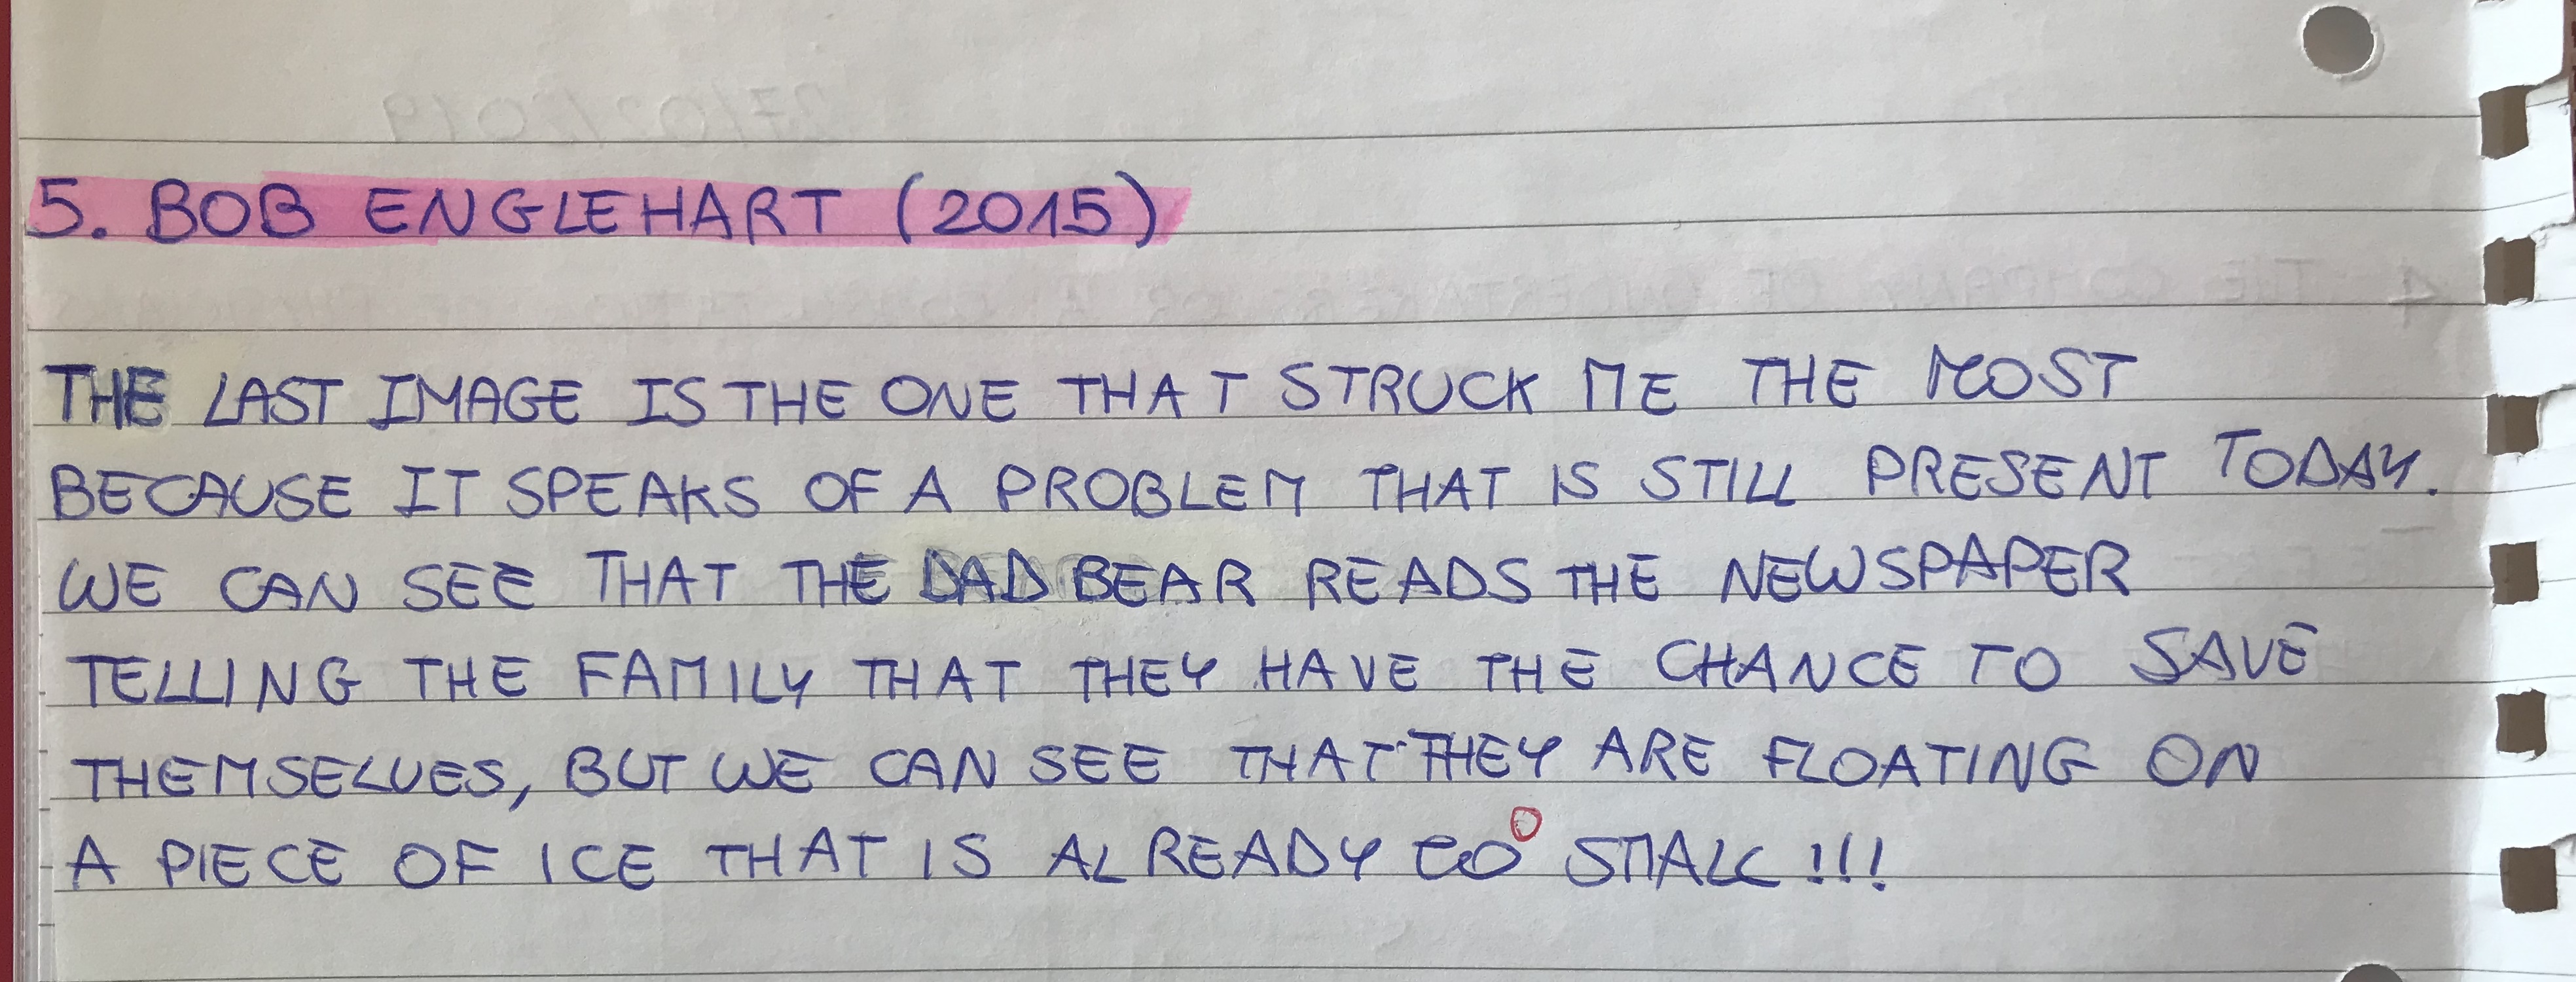 27/02/2019
5. BOB ENGLEHART (2015)
THE LAST IMAGE IS THE ONE THAT STRUCK ME THE MOST
BECAUSE IT SPEAKS OF A PROBLEM THAT IS STILL PRESENT TODAY.
WE CAN SEE THAT THE DAD BEAR READS THE NEWSPAPER
TELLING THE FAMILY THAT THEY HAVE THE CHANCE TO SAVE
THEMSELVES, BUT WE CAN SEE THAT THEY ARE FLOATING ON
A PIECE OF ICE THAT IS ALREADY SMALL!!!